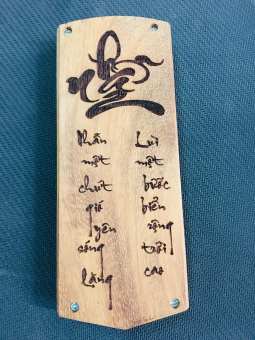 Nhẫn
Nhẫn
một
chút
gió
yên
sóng
lặng
Lùi
một
bước
biển
rộng
trời
cao